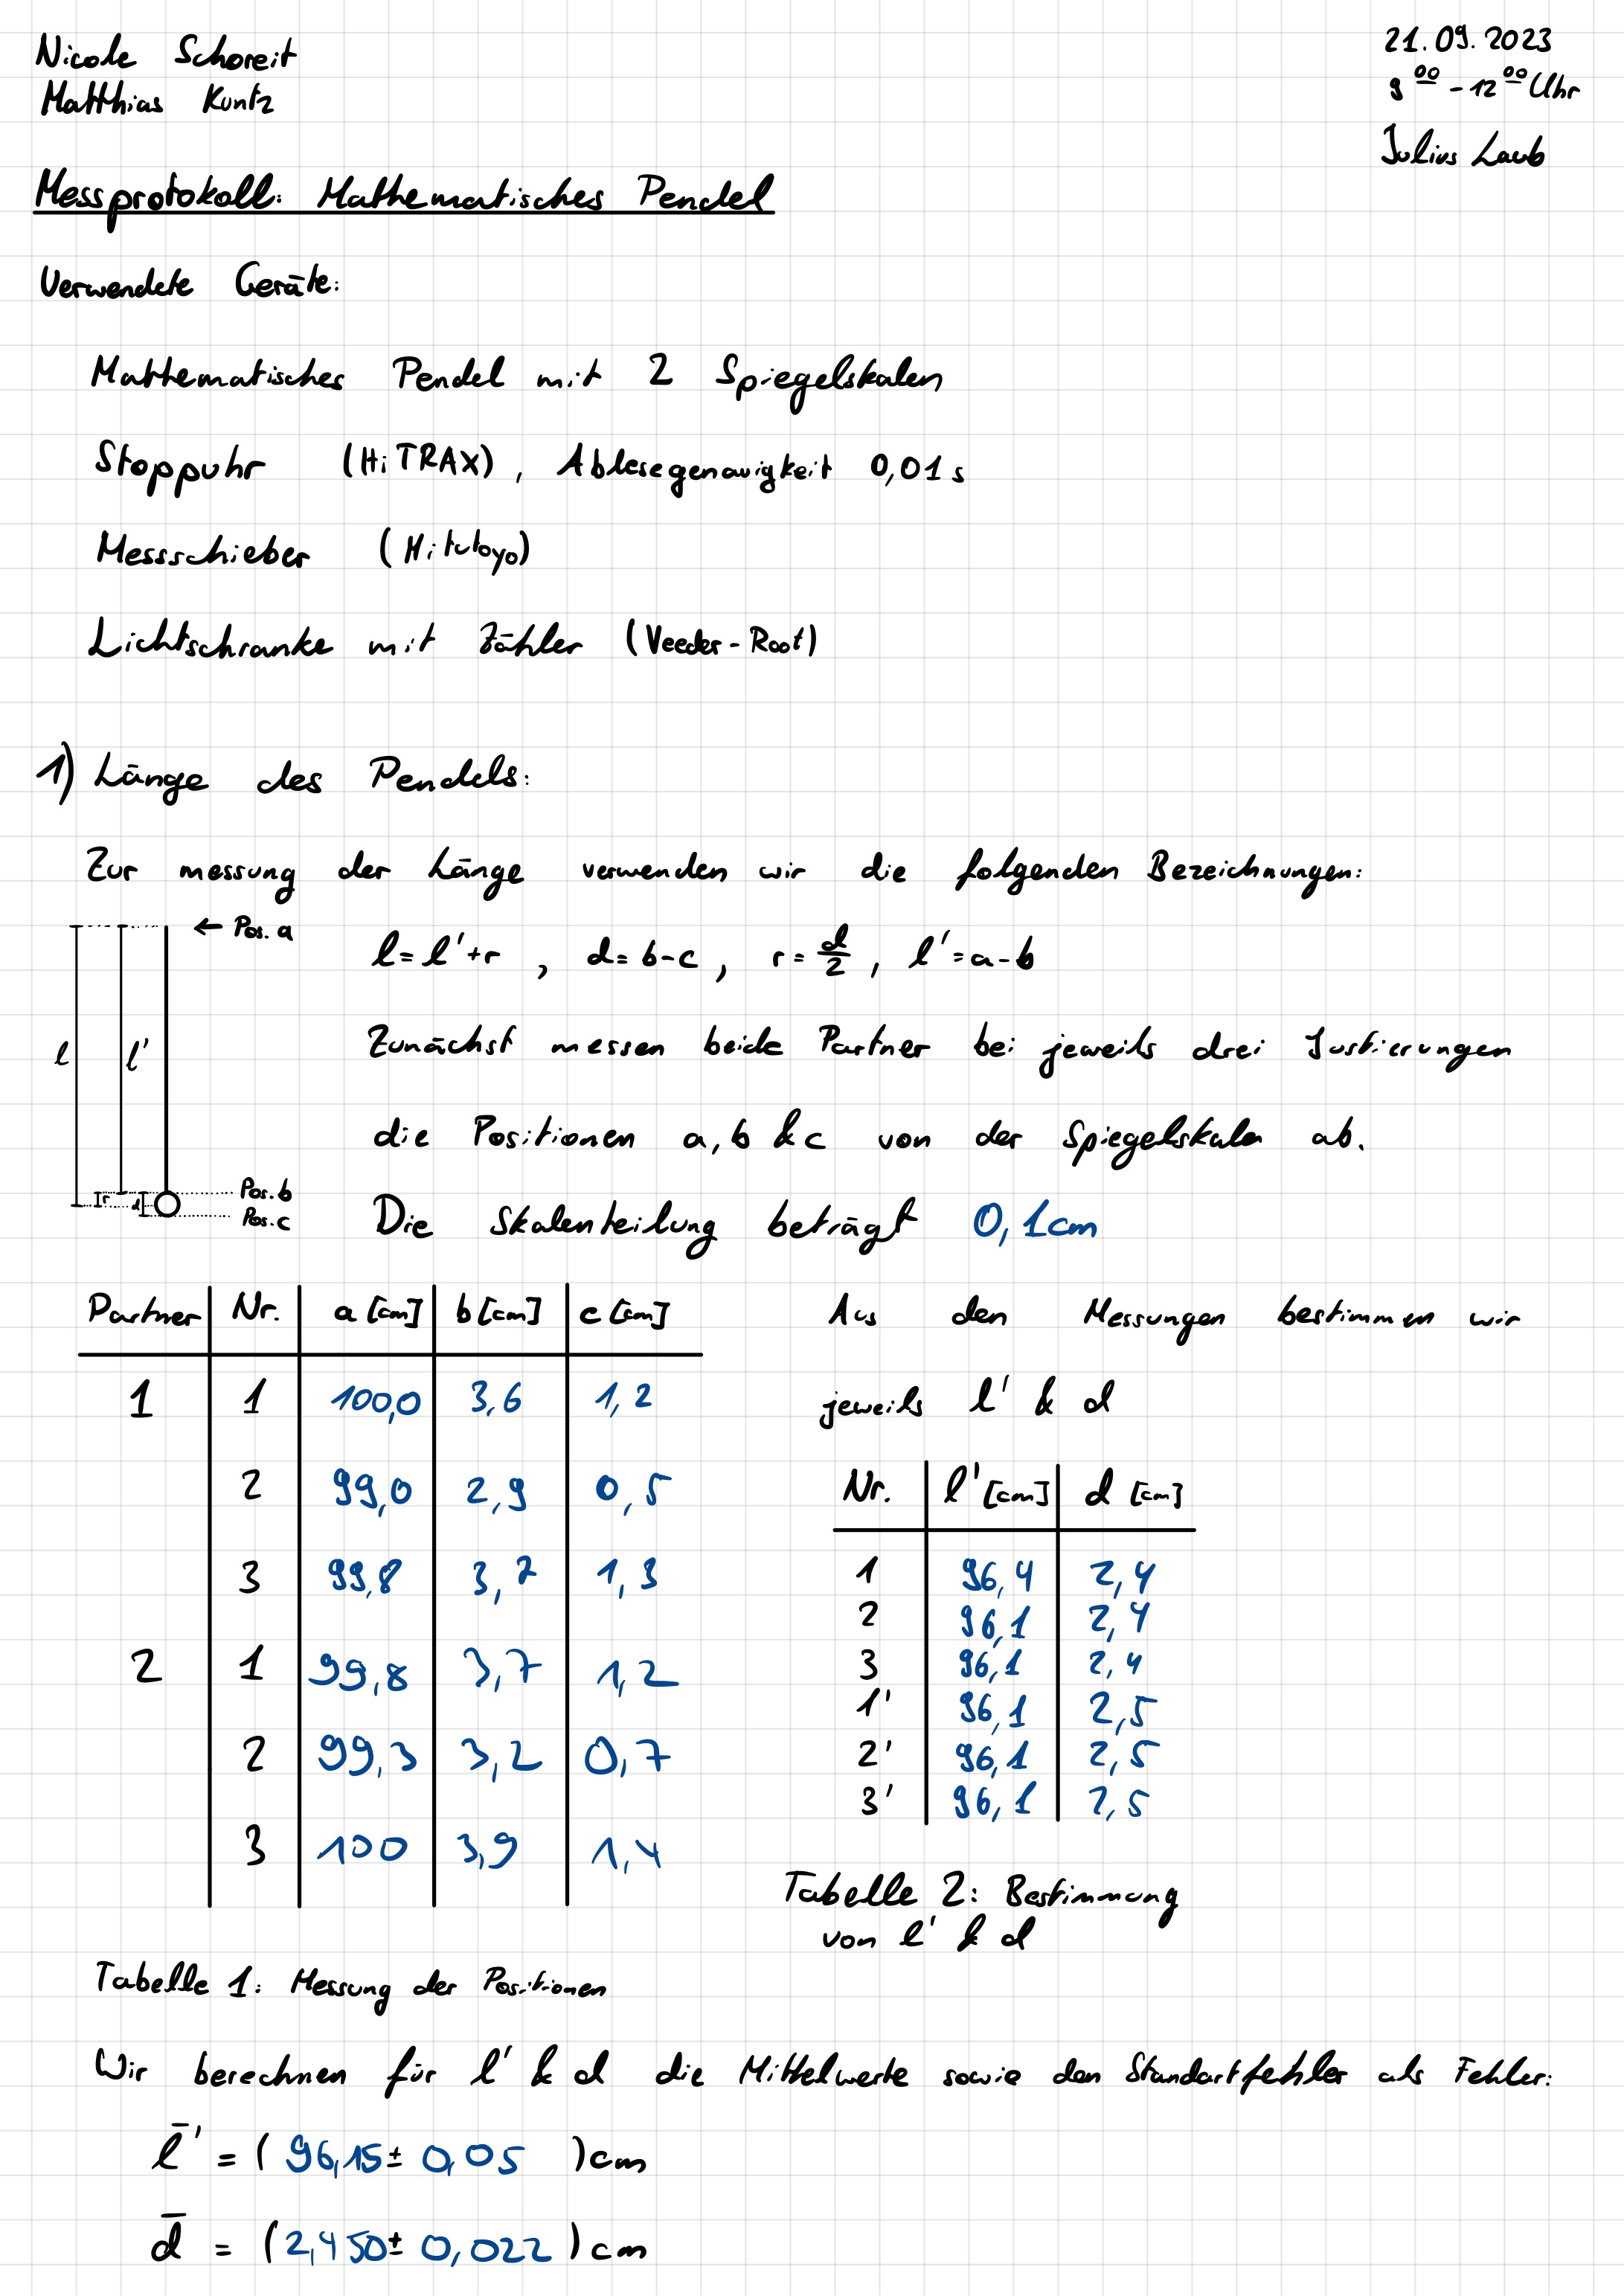 Nicole Schoreit
Matthias Kuntz
21.09.2023
9⁰⁰ - 12⁰⁰ Uhr
Julius Laub
Messprotokoll: Mathematisches Pendel
Verwendete Geräte:
Mathematisches Pendel mit 2 Spiegelskalen
Stoppuhr (HiTRAX), Ablesegenauigkeit 0,01s
Messschieber (Mitutoyo)
Lichtschranke mit Zähler (Veeder-Root)
1) Länge des Pendels:
Zur messung der Länge verwenden wir die folgenden Bezeichnungen:
← Pos. a
l = l'+r , d = b-c , r = d/2 , l' = a-b
l l'
Zunächst messen beide Partner bei jeweils drei Justierungen
die Positionen a, b & c von der Spiegelskala ab.
r d
Pos. b
Pos. c
Die Skalenteilung beträgt 0,1cm
Partner Nr. a [cm] b [cm] c [cm]
1 1 100,0 3,6 1,2
2 99,0 2,9 0,5
3 99,8 3,7 1,3
2 1 99,8 3,7 1,2
2 99,3 3,2 0,7
3 100 3,9 1,4
Tabelle 1: Messung der Positionen
Aus den Messungen bestimmen wir
jeweils l' & d
Nr. l' [cm] d [cm]
1 96,4 2,4
2 96,1 2,4
3 96,1 2,4
1' 96,1 2,5
2' 96,1 2,5
3' 96,1 2,5
Tabelle 2: Bestimmung
von l' & d
Wir berechnen für l' & d die Mittelwerte sowie den Standartfehler als Fehler:
l̄' = ( 96,15 ± 0,05 ) cm
d̄ = ( 2,450 ± 0,022 ) cm